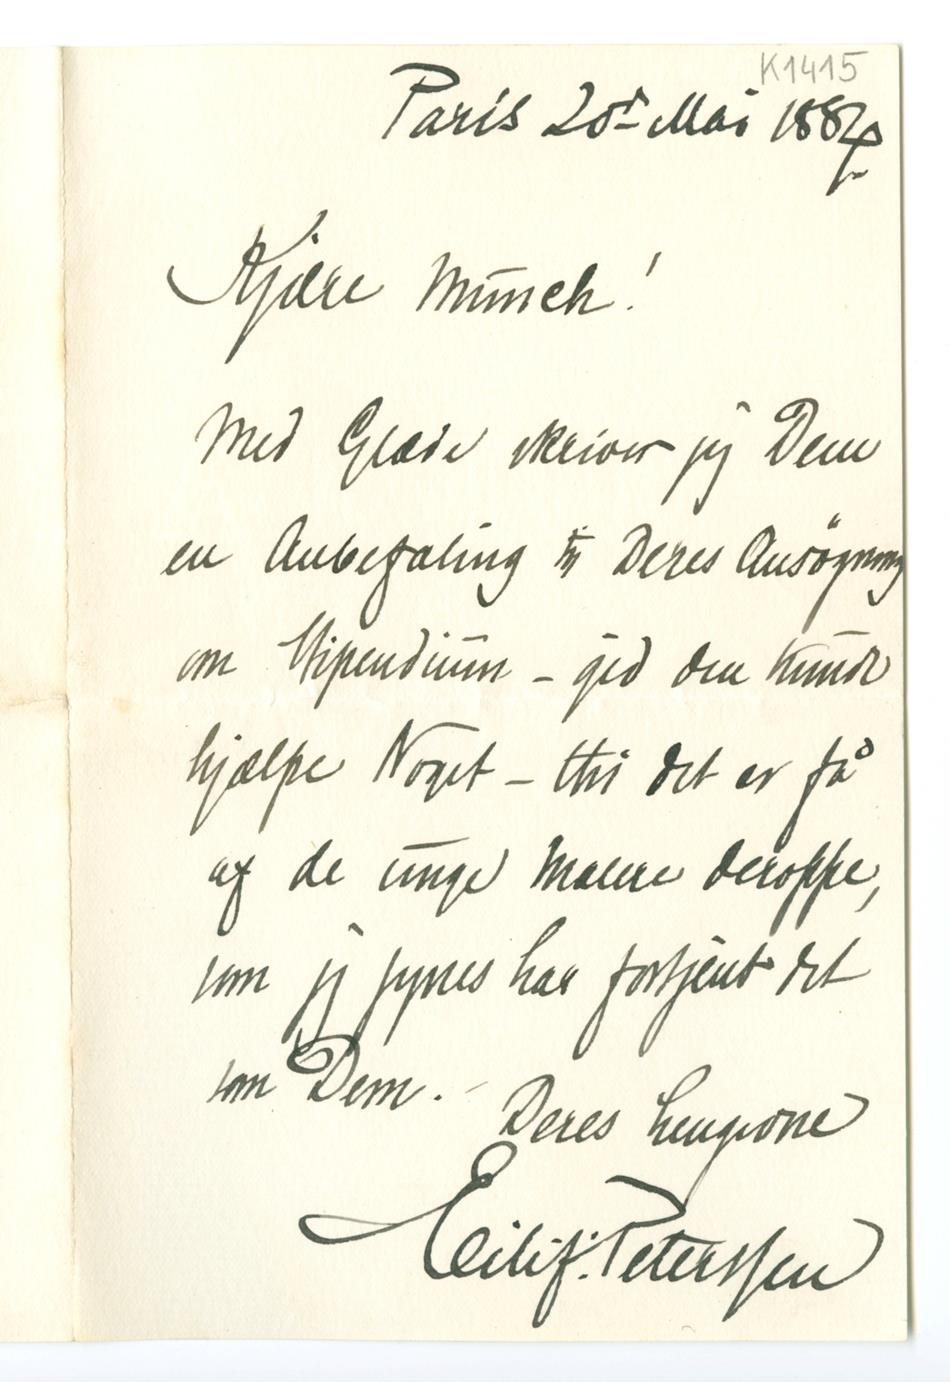 K1415
Paris 20de Mai 1884
Kjære Munch!
Med Glæde skriver jeg Dem
en Anbefaling til Deres Ansögning
om Stipendium – gid den kunde
hjælpe Noget – thi det er få
af de unge Malere deroppe,
som jeg synes har fortjent det
som Dem. –
Deres hengivne
Eilif. Peterssen